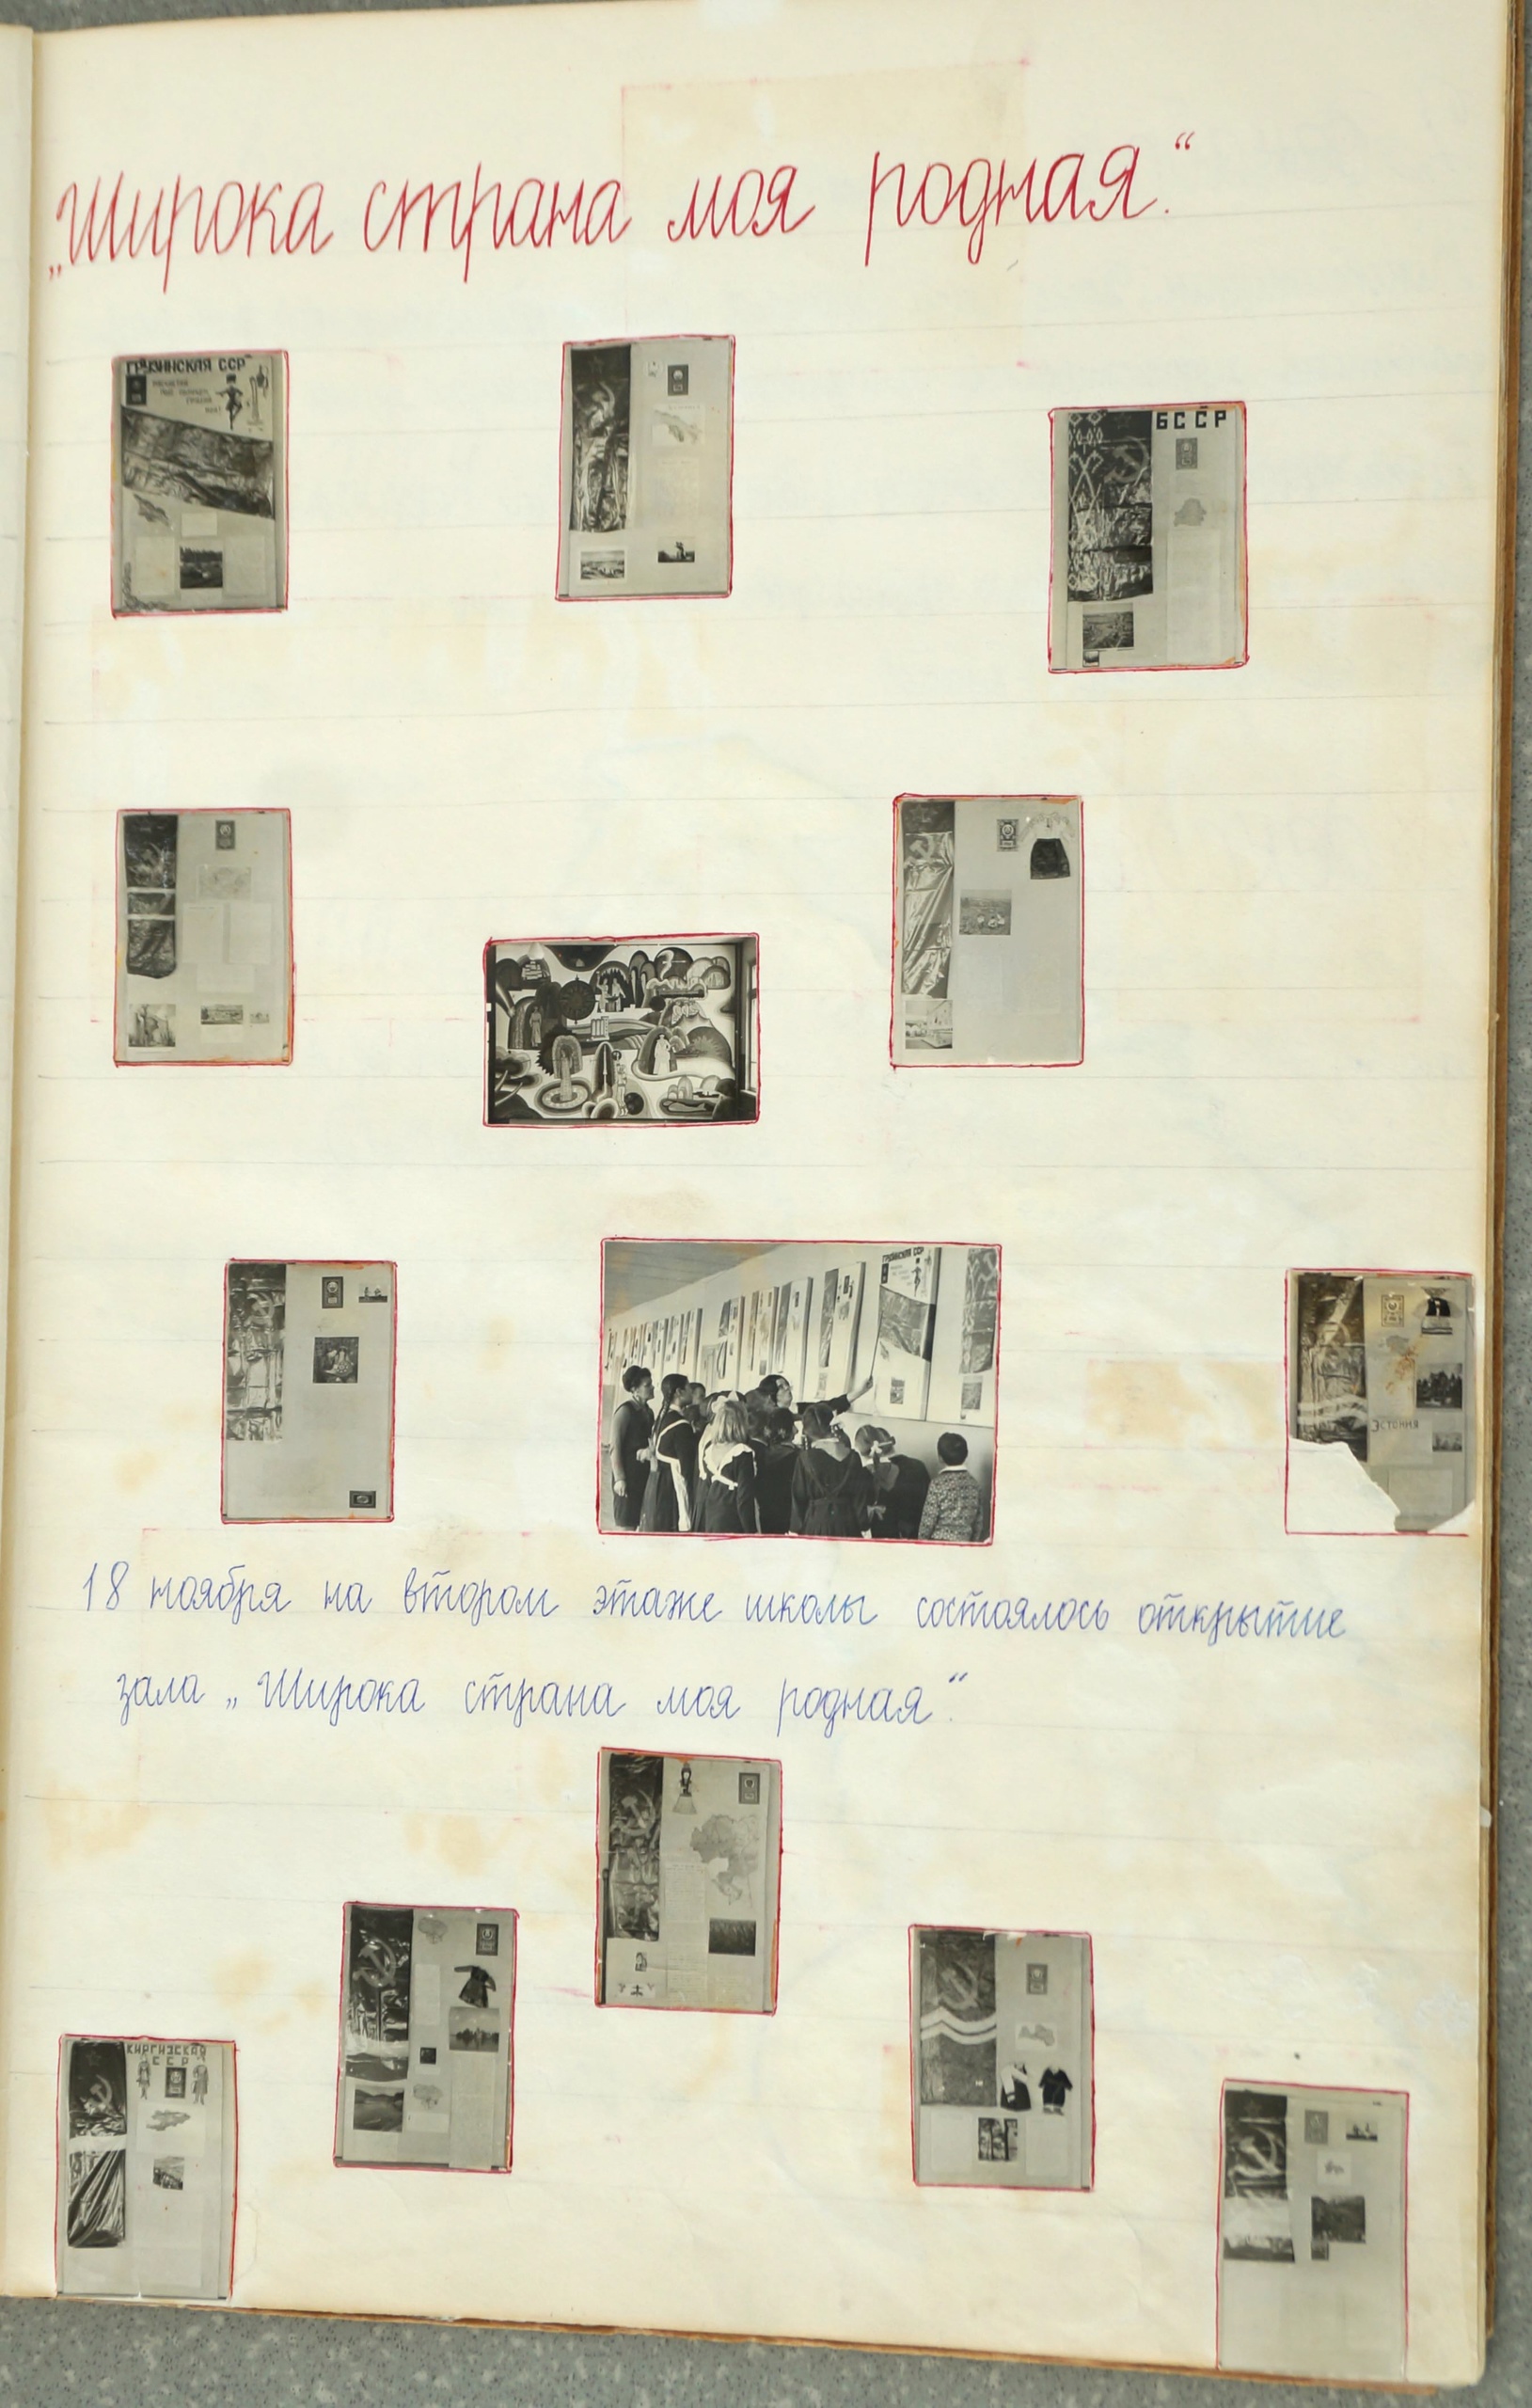 „Широка страна моя родная.“
ГРУЗИНСКАЯ ССР
БССР
ГРУЗИНСКАЯ ССР
Эстония
18 ноября на втором этаже школы состоялось открытие
зала „Широка страна моя родная“.
КИРГИЗСКАЯ
ССР